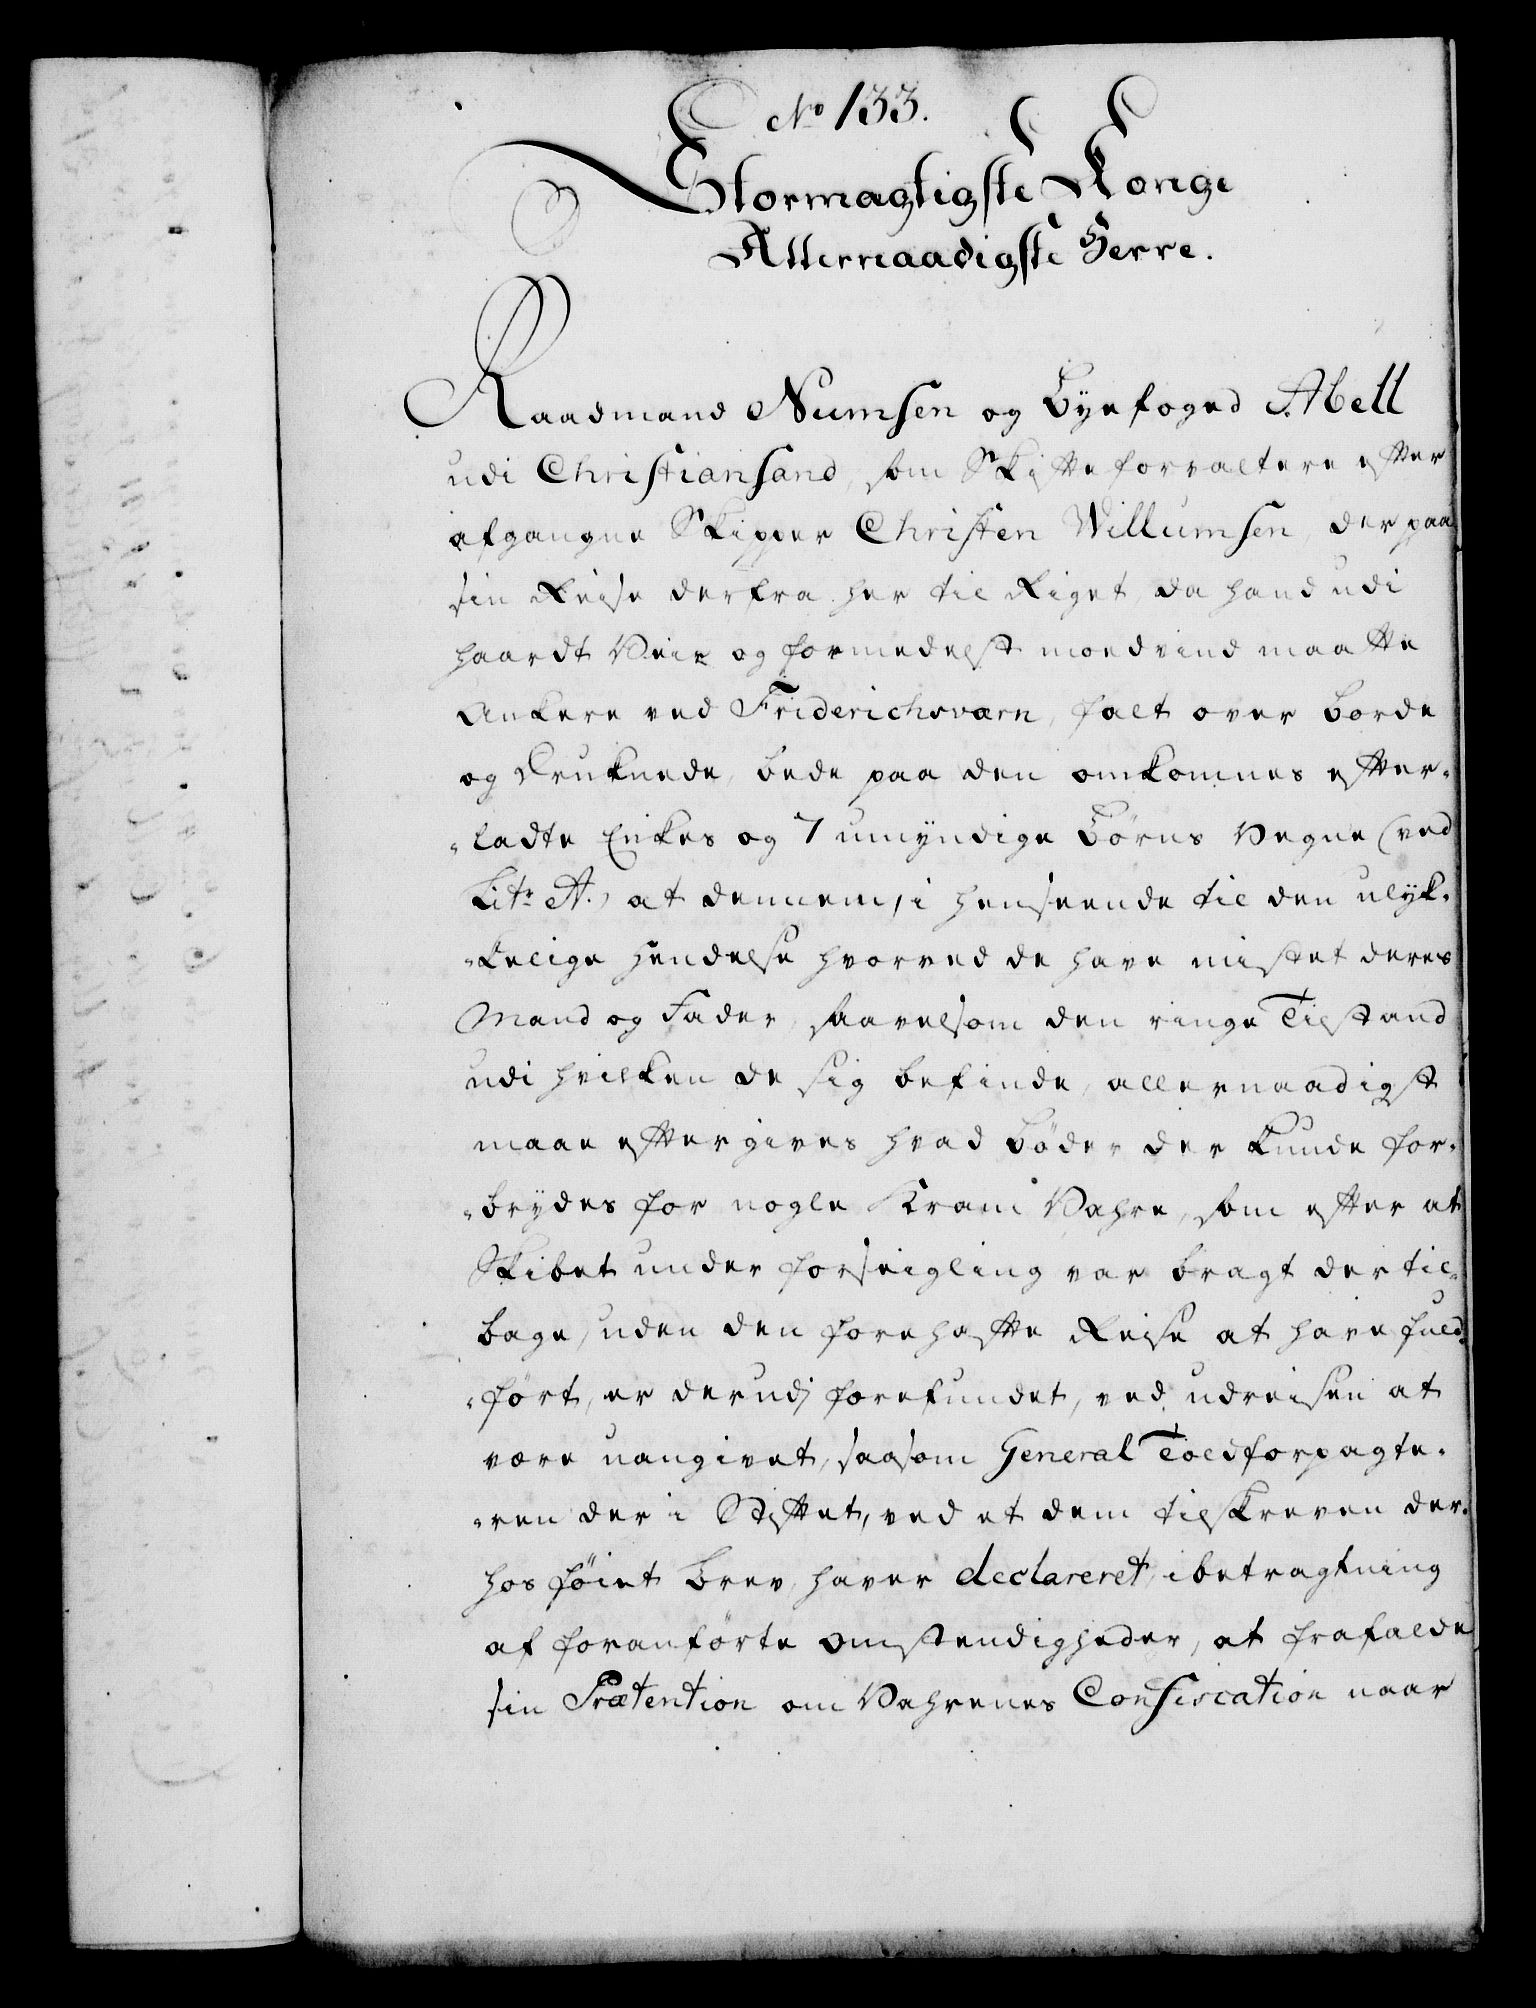 No 133.
Stormagtigste Konge
Allernaadigste Herre.
Raadmand Numsen og Byefoged Abell
udi Christiansand, som Skifteforvaltere efter
afgangne Skipper Christen Willumsen, der paa
sin Reise derfra her til Riget, da hand udi
haardt Veir og formedelst modvind maatte
Ankere ved Friderichsværn, falt over borde
og druknede, bede paa den omkomnes efter-
-ladte Enkes og 7 umyndige Børns Vegne (ved
Litr A.) at dennem, i henseende til den ulyk-
-kelige Hendelse hvorved de have mistet deres
Mand og Fader, saavelsom den ringe Tilstand
udi hvilken de sig befinde, allernaadigst
maae eftergives hvad Bøder der kunde for-
-brydes for nogle Kram Vahre, som efter at
Skibet under forseigling var bragt der til-
bage, uden den forehafte Reise at have fuld-
-ført, er derudj forefundet, ved udreisen at
være uangivet, saasom General Toldforpagte-
-ren der i Stiftet, ved et dem tilskreven der-
hos føiet Brev, haver declareret, i betragtning
af foranførte Omstendigheder, at frafalde
sin Prætention om Vahrenes Confiscation naar